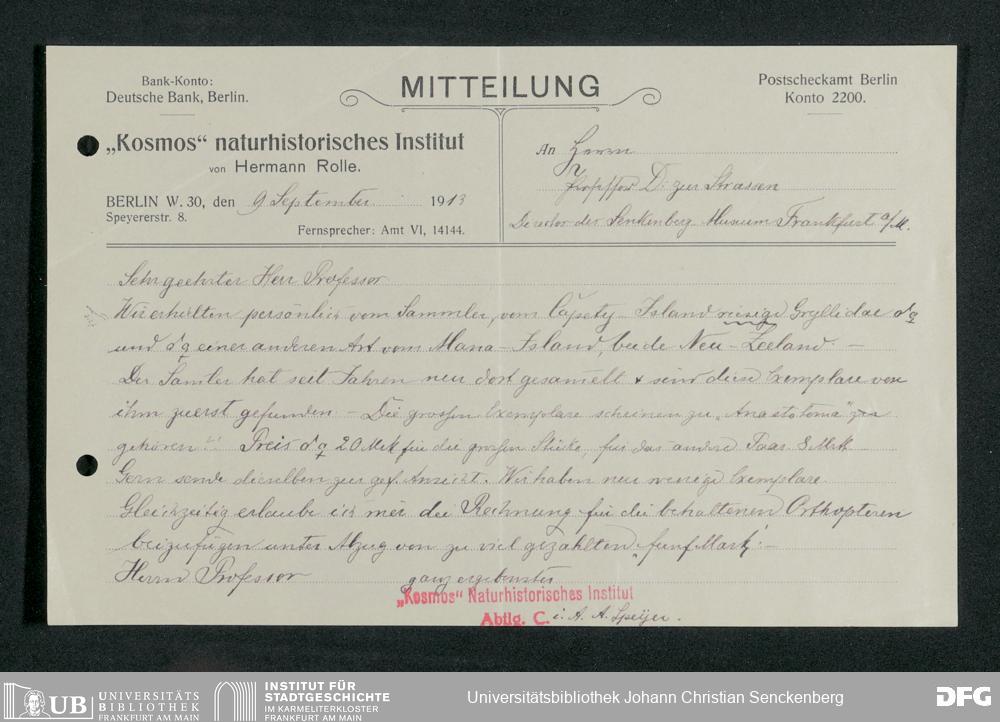 Bank-Konto:
Deutsche Bank, Berlin.
MITTEILUNG
Postscheckamt Berlin
Konto 2200.
„Kosmos“ naturhistorisches Institut
von Hermann Rolle.
BERLIN W. 30, den 9 September 1913
Speyererstr. 8.
Fernsprecher: Amt VI, 14144.
An Herrn
Professor Dr zur Strassen
Director des Senkenberg Museum Frankfurt a/M.
Sehr geehrter Herr Professor
Wir erhielten persönlich vom Sammler, vom Island riesige Gryllidae ♂♀
und ♂♀ einer anderen Art vom Mana-Island, beide Neu-Zeeland. –
Der Samler hat seit Jahren neu dort gesamelt & sind diese Exemplare von
ihm zuerst gefunden – Die grossen Exemplare scheinen zu „Anastotoma“
gehören!! Preis ♂♀ 20 Mck für die großen Stücke, für das andere Paar 8 Mck
Gern sende dieselben zur gef. Ansicht. Wir haben nur wenige Exemplare.
Gleichzeitig erlaube ich mir die Rechnung für die behaltenen Orthopteren
beizufügen unter Abzug von zu viel gezahlten „fünf Mark“! –
Herrn Professor
ganz ergebenster
„Kosmos“ Naturhistorisches Institut
Abtlg. C. i. A. A. Speijer.
UB UNIVERSITÄTS
BIBLIOTHEK
FRANKFURT AM MAIN
INSTITUT FÜR
STADTGESCHICHTE
IM KARMELITERKLOSTER
FRANKFURT AM MAIN
Universitätsbibliothek Johann Christian Senckenberg
DFG